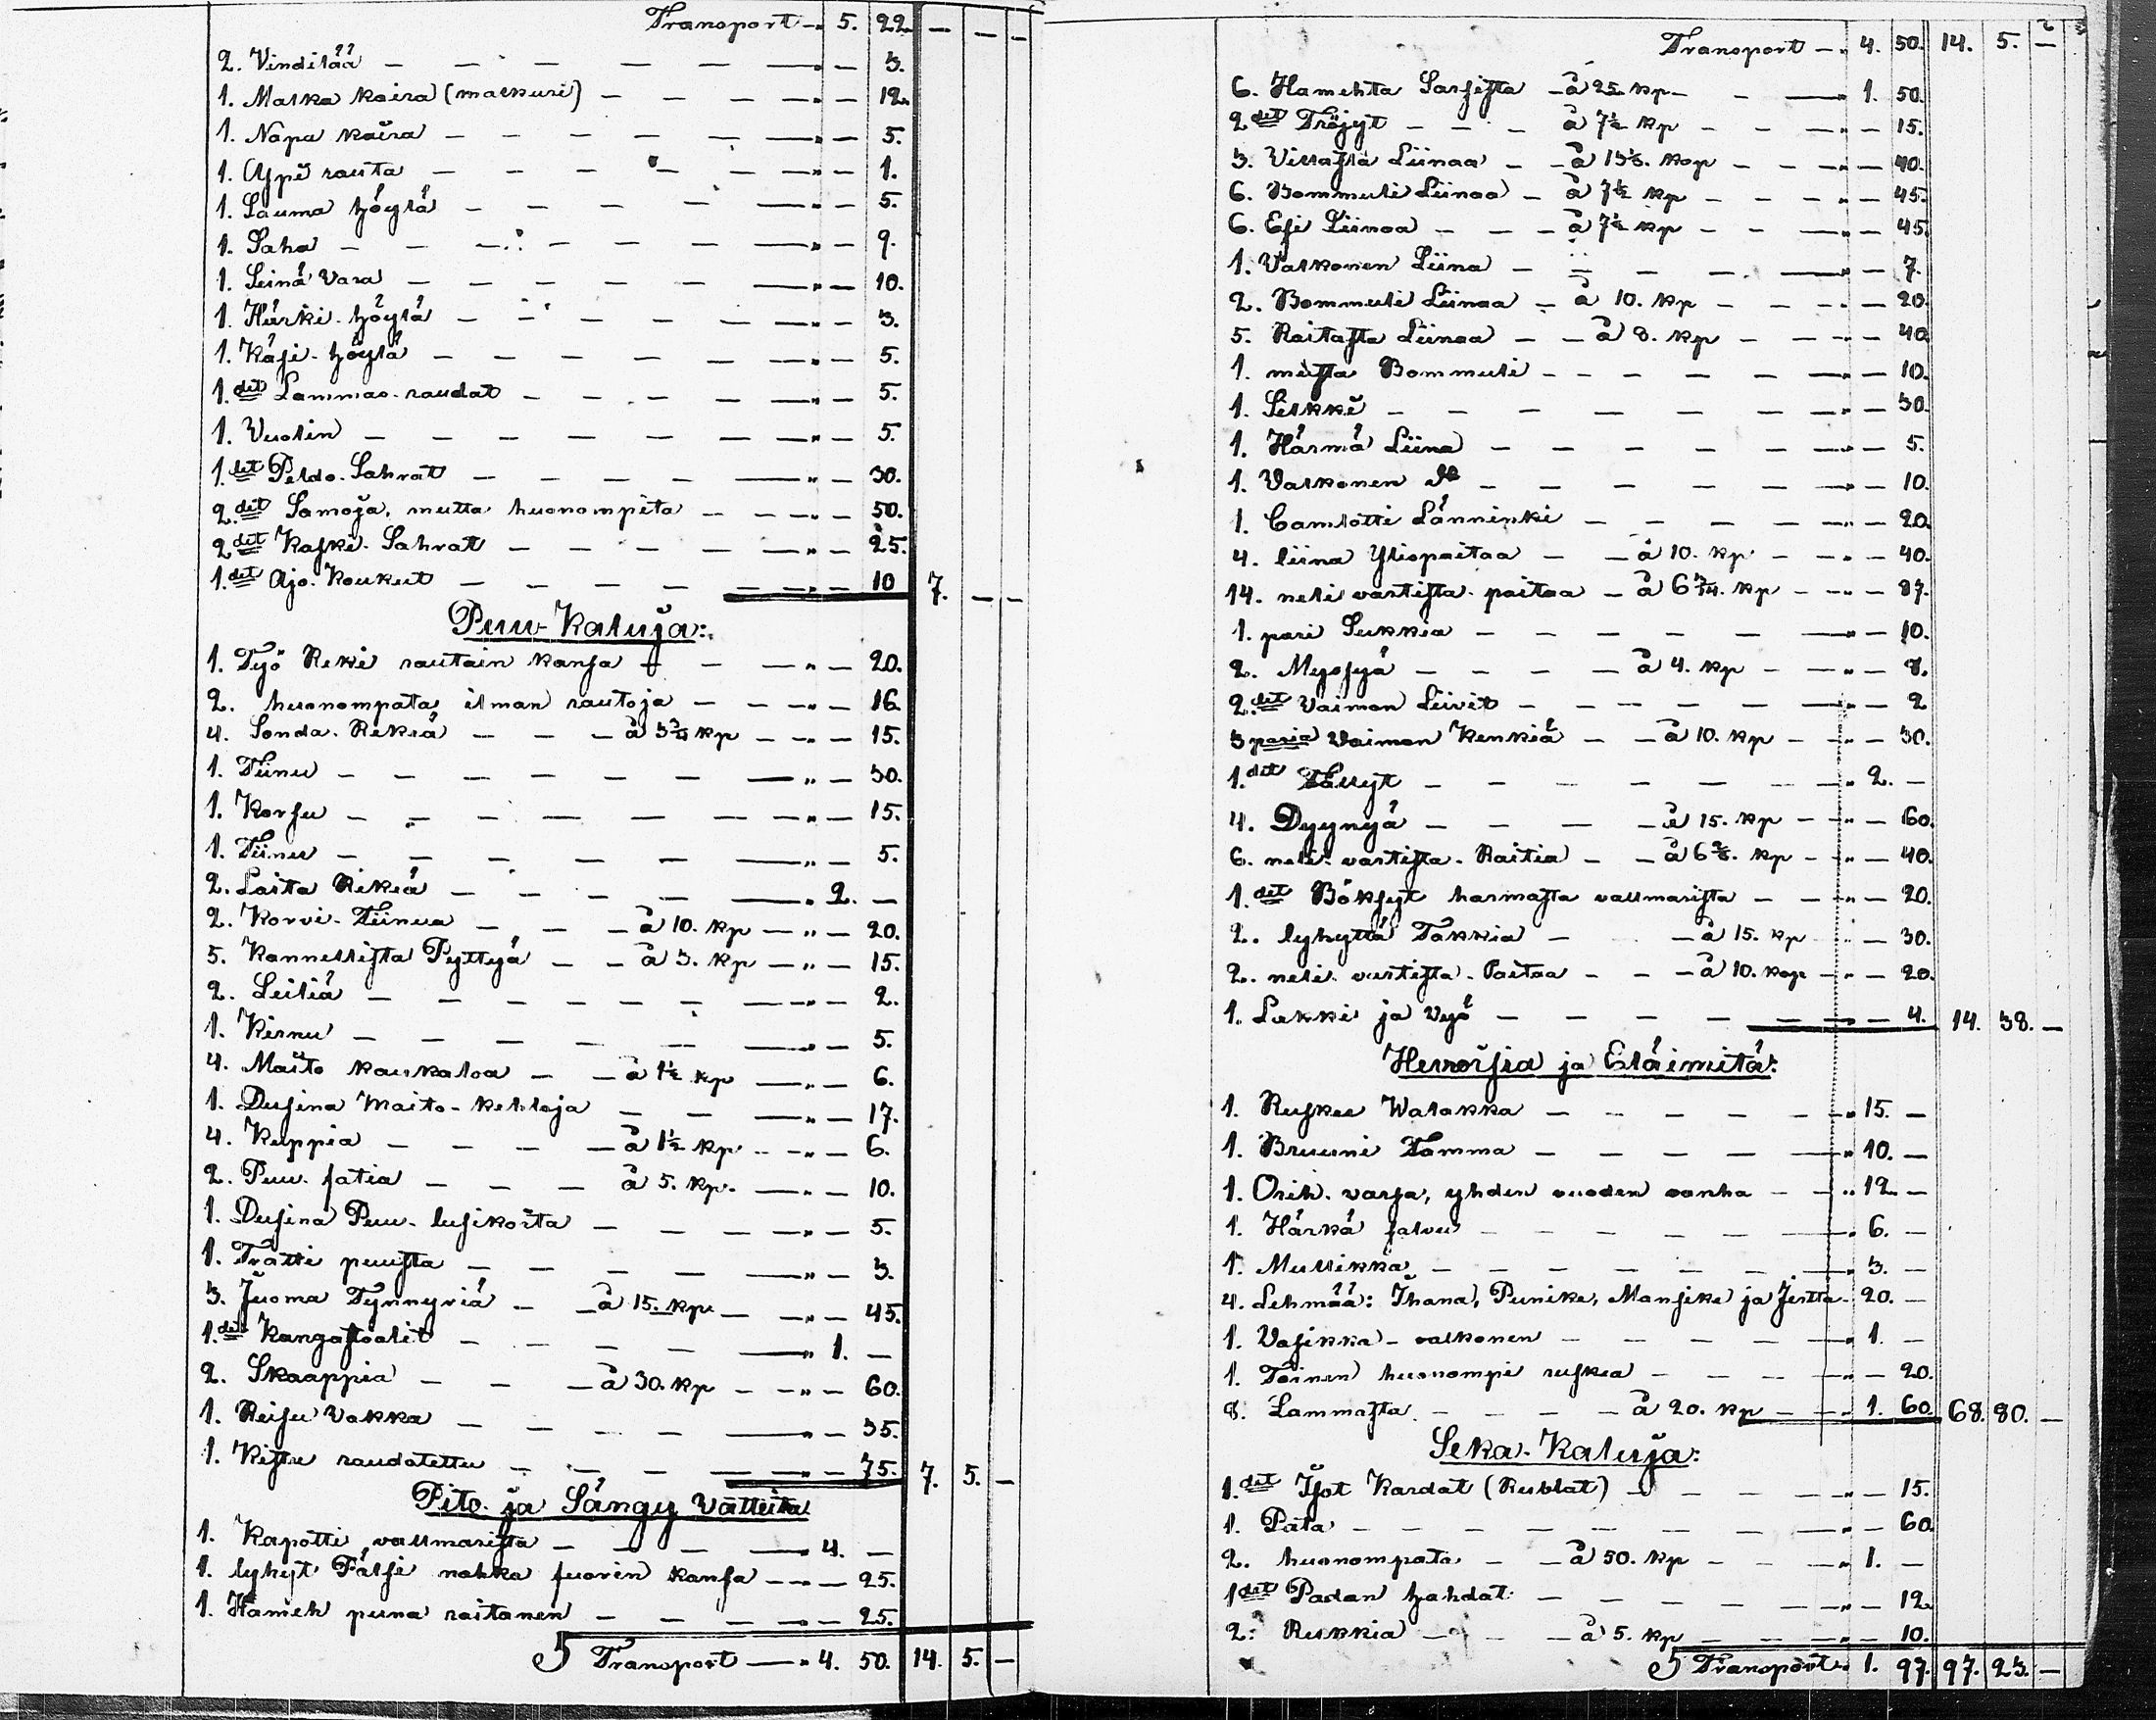 Transport — 5. 22. — — —
2. Vindilää — — — — — " — 3.
1. Malka kaira (malkuri) — — — — " — 12.
1. Napa kaira — — — — — " — 5.
1. Äypi rauta — — — — — " — 1.
1. Lauma höylä — — — — — " — 5.
1. Saha — — — — — " — 9.
1. Seinä Vara — — — — — " — 10.
1. Härki-höylä — — — — — " — 3.
1. Käsi-höylä — — — — — " — 5.
1. det Lammas-raudat — — — — " — 5.
1. Vuolin — — — — — " — 5.
1. det Peldo-Sahrat — — — — " — 30.
2. det Samoja, mutta huonompita — — — " — 50.
2. det Kaski-Sahrat — — — — " — 25.
1. det Ajo-Koukut — — — — " — 10 7. — —
Puu-Kaluja:
1. Työ Reki rautain kansa — — — " — 20.
2. huonompata ilman rautoja — — — " — 16
4. Sonda-Rekiä — — — à 3 3/4 kp — — " — 15.
1. Tiinu — — — — — " — 30.
1. Korsu — — — — — " — 15.
1. Tiinu — — — — — " — 5.
2. Laita Rekiä — — — — — " 2. —
2. Korvi-Tiinua — — — à 10. kp — " — 20.
5. Kannellista Pyttyä — — à 3. kp — " — 15.
2. Leiliä — — — — — " — 2.
1. Kirnu — — — — — " — 5.
4. Maito kaukaloa — — à 1½ kp — " — 6.
1. Dusina Maito-kehloja — — — " — 17.
4. Kuppia — — — — à 1½ kp — " — 6.
2. Puu-fatia — — — à 5. kp. — " — 10.
1. Dusina Puu-lusikoita — — — — " — 5.
1. Tratti puusta — — — — " — 3.
3. Juoma Tynnyriä — — à 15. kp. — " — 45.
1. det Kangastoolit — — — — " 1. —
2. Skaappia — — — à 30. kp — — " — 60.
1. Reisu Vakka — — — — " — 35.
1. Kistu raudatettu — — — — " — 75. 7. 5. —
Pito- ja Sängy Vatteita
1. Kapotti, vallmarista — — — — " 4. —
1. lyhyt Pälsi nahka fuorin kansa — — — 25.
1. Hameh puna raitanen — — — " — 25.
Transport — " 4. 50. 14. 5. —
Transport — " 4. 50. 14. 5. —
6. Hamehta Sarsista — à 25 kp — — — " 1. 50.
2 det Tröjyt — — — à 7½ kp — — " — 15.
3. Villasta Liinaa — — à 13⅓. kop — — " — 40.
6. Bommuli Liinaa — à 7½ kp — — — " — 45.
6. Esi Liinaa — — — à 7½ kp — — — " — 45.
1. Valkonen Liina — — — — — " — 7.
2. Bommuli Liinaa — à 10. kp — — — " — 20.
5. Raitasta Liinaa — — à 8. kp — — — " — 40.
1. musta Bommuli — — — — — " — 10.
1. Silkki — — — — — " — 30.
1. Härmä Liina — — — — — " — 5.
1. Valkonen do — — — — — " — 10.
1. Camlotti Länninki — — — — " — 20.
4. liina Yliopaitaa — — à 10. kp — — " — 40.
14. neli vartista-paitaa — à 6 3/14. kp — — " — 87.
1. pari Sukkia — — — — — " — 10.
2. Myssyä — — — — à 4. kp — — " — 8.
2. det Vaimon Liivit — — — — " — 2
3 paria Vaimon Kenkiä — — à 10. kp — — " — 30.
1. det Tällyt — — — — — " 2. —
4. Dyynyä — — — — à 15. kp — — " — 60.
6. neli-vartista-Raitia — — à 6⅔. kp — " — 40.
1. det Böksyt harmasta vallmarista — — " — 20.
2. lyhyttä Takkia — — à 15. kp — " — 30.
2. neli-vartista-Paitaa — — — à 10. kop — " — 20.
1. Lakki ja Vyö — — — — — " — 4. 14. 38. —
Hevoisia ja Eläimitä:
1. Ruskee Walakka — — — — — " 15. —
1. Bruuni Tamma — — — — — " 10. —
1. Orih-varsa, yhden vuoden vanha — — " 12. —
1. Härkä salvu — — — — — " 6. —
1. Mullikka — — — — — " 3. —
4. Lehmää: Ihana, Punike, Mansike ja Jertta. 20. —
1. Vasikka-valkonen — — — — " 1. —
1. Toinen huonompi ruskea — — — " — 20.
8. Lammasta — — — — à 20. kp — — " 1. 60. 68. 80. —
Seka-Kaluja:
1. det Isot Kardat (Rublat) — — — — " — 15.
1. Pata — — — — — " — 60.
2. huonompata — — à 50. kp — — " 1. —
1 det Padan hahdat — — — — " — 12.
2. Rukkia — — — à 5. kp — — " — 10.
Transport " 1. 97. 97. 23. —